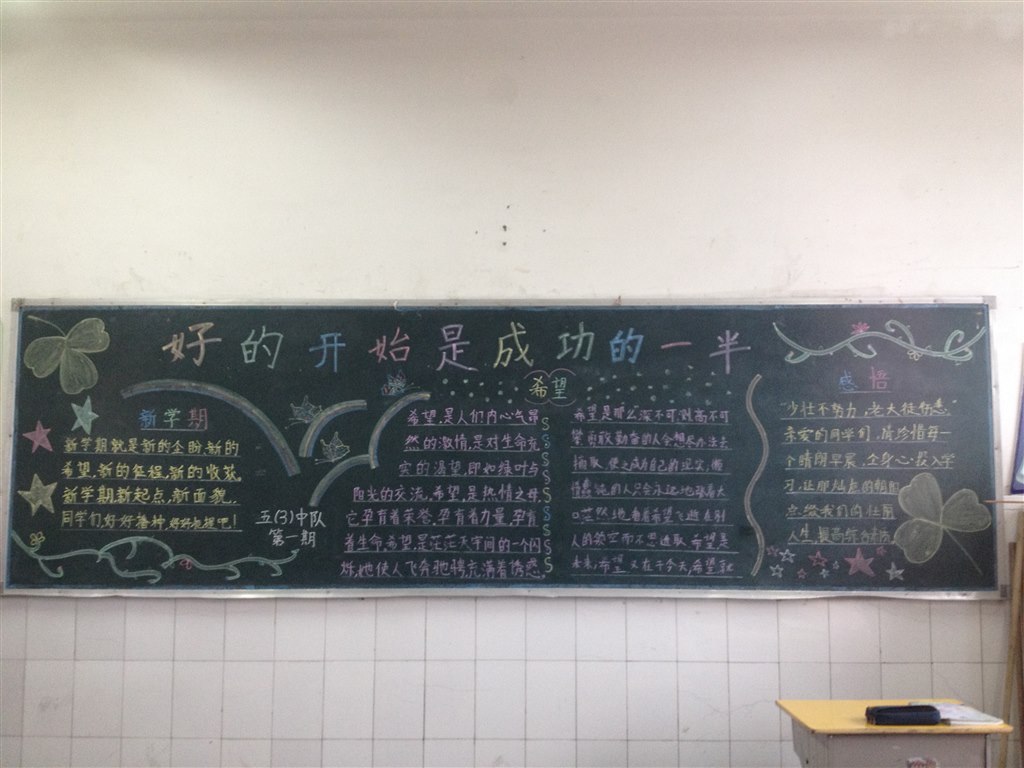 好的开始是成功的一半
新学期
新学期就是新的企盼,新的
希望,新的征程,新的收获。
新学期新起点,新面貌,
同学们好好播种 好好把握吧!
五(3)中队
第一期
希望
希望,是人们内心气昂
然的激情,是对生命充
实的渴望,即如绿叶与
阳光的交流,希望,是热情之母,
它孕育着荣誉,孕育着力量,孕育
着生命,希望,是茫茫天宇间的一个闪
烁,她使人飞奔驰骋,充满着诱惑。
希望是那么深不可测高不可
攀 勇敢勤奋的人会想尽办法去
摘取 使之成为自己的现实,懒
惰 的人只会永远地张着大
口茫然地看着希望飞逝在别
人的领空而不思进取 希望是
未来,希望 又在于今天,希望就
感悟
“少壮不努力,老大徒伤悲”
亲爱的同学们,请珍惜每一
个晴朗早晨,全身心投入学
习,让那灿烂的朝阳
点缀我们的壮丽
人生,提高综合素质